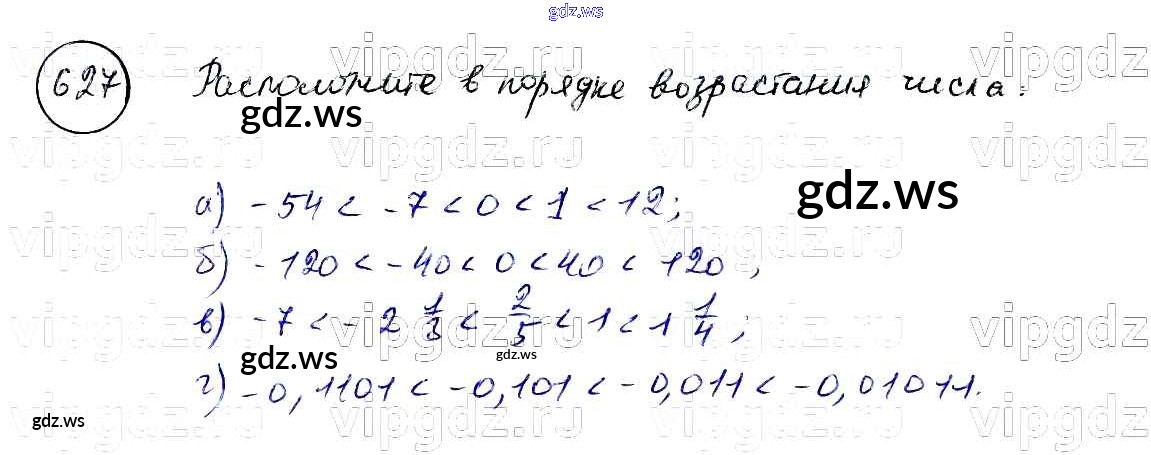 gdz.ws
vipgdz.ru vipgdz.ru vipgdz.ru vipgdz
627 Расположите в порядке возрастания числа:
gdz.ws
vipgdz.ru vipgdz.ru vipgdz.ru vipgdz
gdz.ws
а) -54 < -7 < 0 < 1 < 12;
vipgdz.ru vipgdz.ru vipgdz.ru vipgdz
б) -120 < -40 < 0 < 40 < 120;
в) -7 < -2 1/3 < 2/5 < 1 < 1 1/4;
vipgdz.ru vipgdz.ru vipgdz.ru vipgdz
gdz.ws gdz.ws
г) -0,1101 < -0,101 < -0,011 < -0,01011.
gdz.ws
vipgdz.ru vipgdz.ru vipgdz.ru vipgdz